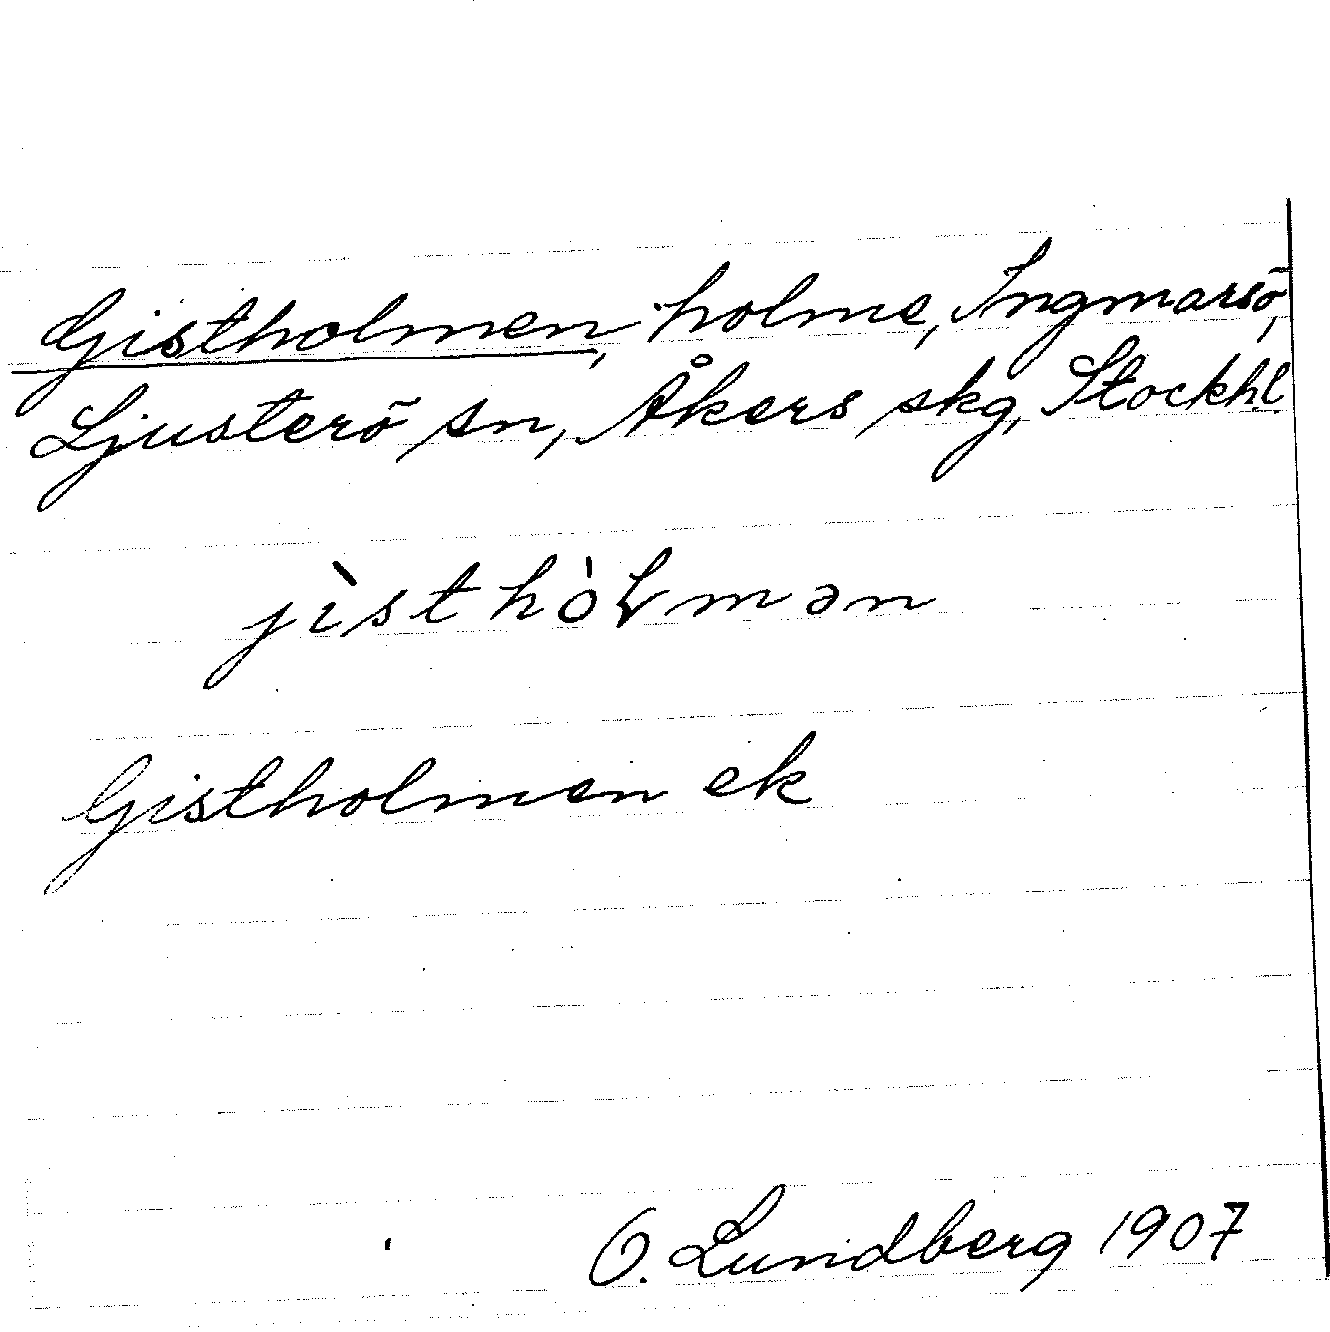 Gistholmen, holme, Ingmarsö,
Ljusterö sn, Åkers skg, Stockh.l
jìsthòɫmən
Gistholmen ek
O. Lundberg 1907